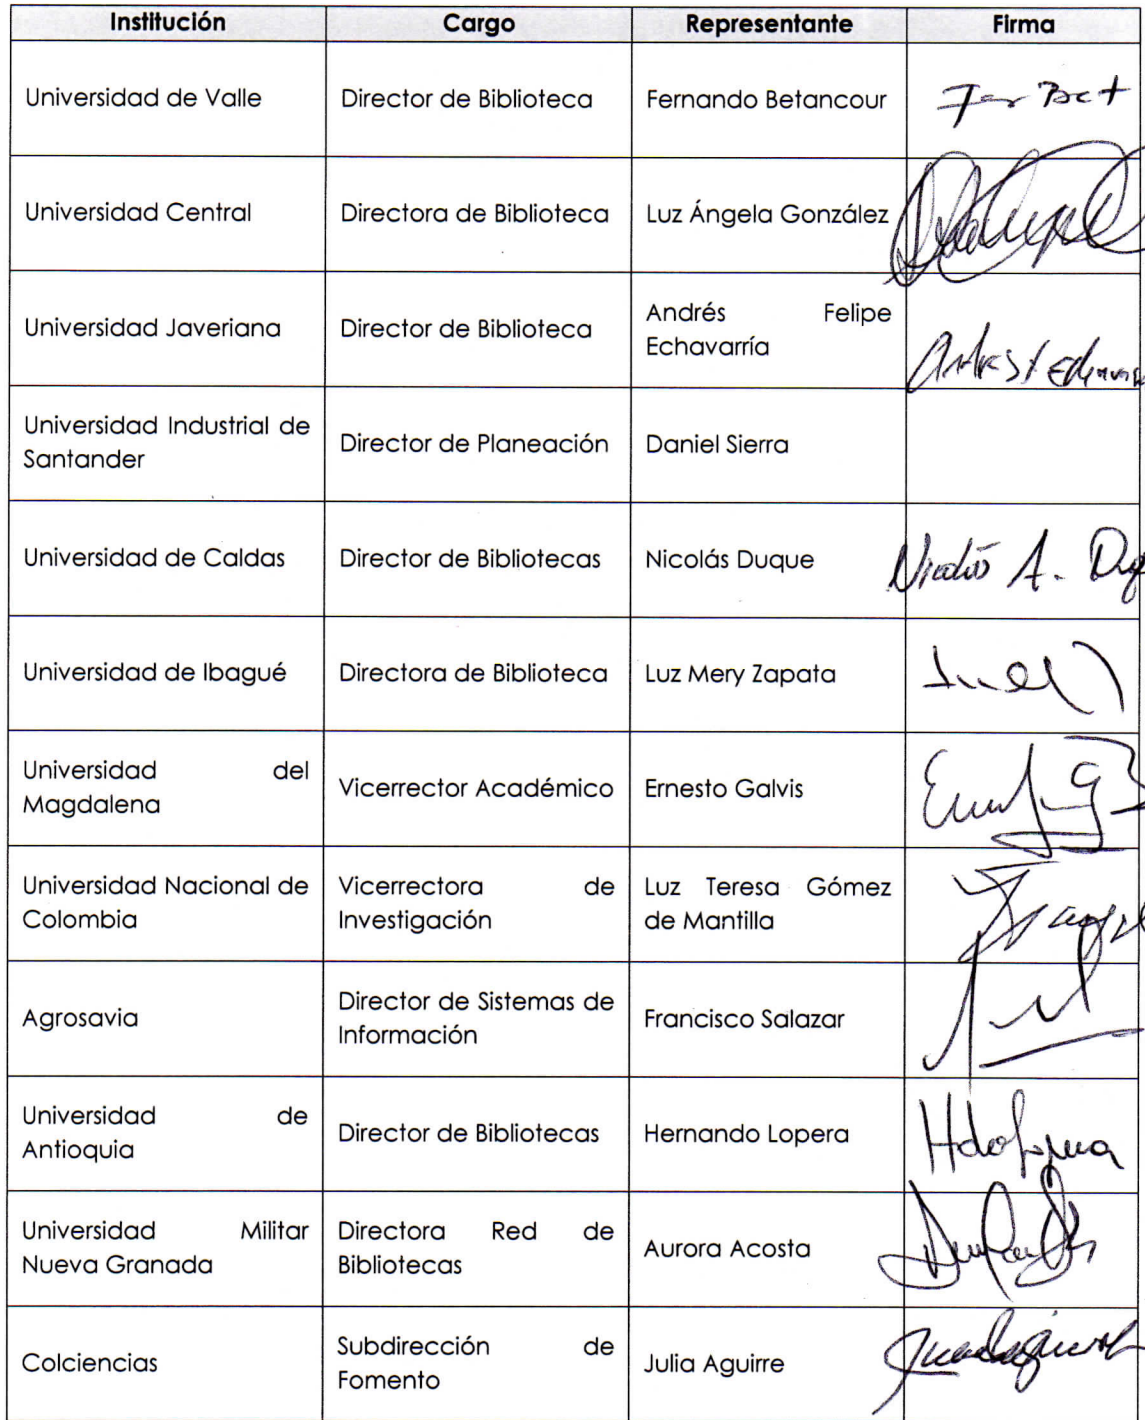 Institución Cargo Representante Firma
Universidad de Valle Director de Biblioteca Fernando Betancour Fer Bet
Universidad Central Directora de Biblioteca Luz Ángela González
Universidad Javeriana Director de Biblioteca Andrés Felipe
Echavarría
Universidad Industrial de
Santander Director de Planeación Daniel Sierra
Universidad de Caldas Director de Bibliotecas Nicolás Duque Nicolás A. Duq
Universidad de Ibagué Directora de Biblioteca Luz Mery Zapata
Universidad del
Magdalena Vicerrector Académico Ernesto Galvis
Universidad Nacional de
Colombia Vicerrectora de
Investigación Luz Teresa Gómez
de Mantilla
Agrosavia Director de Sistemas de
Información Francisco Salazar
Universidad de
Antioquia Director de Bibliotecas Hernando Lopera
Universidad Militar
Nueva Granada Directora Red de
Bibliotecas Aurora Acosta
Colciencias Subdirección de
Fomento Julia Aguirre